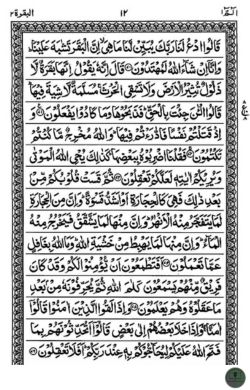 البقرة ٢
١٢
الٓمّٓ ١
قَالُوا ادْعُ لَنَا رَبَّكَ يُبَيِّنْ لَنَا مَا هِيَ ۙ إِنَّ الْبَقَرَ تَشٰبَهَ عَلَيْنَا ؕ
وَإِنَّآ إِنْ شَآءَ اللّٰهُ لَمُهْتَدُونَ ۝ قَالَ إِنَّهٗ يَقُولُ إِنَّهَا بَقَرَةٌ لَّا
ذَلُولٌ تُثِيرُ الْأَرْضَ وَلَا تَسْقِى الْحَرْثَ ۚ مُسَلَّمَةٌ لَّا شِيَةَ فِيهَا ؕ
قَالُوا الْـٰٔنَ جِئْتَ بِالْحَقِّ ؕ فَذَبَحُوهَا وَمَا كَادُوا يَفْعَلُونَ ۝
وَإِذْ قَتَلْتُمْ نَفْسًا فَادّٰرَءْتُمْ فِيهَا ؕ وَاللّٰهُ مُخْرِجٌ مَّا كُنْتُمْ
تَكْتُمُونَ ۝ فَقُلْنَا اضْرِبُوهُ بِبَعْضِهَا ؕ كَذٰلِكَ يُحْىِ اللّٰهُ الْمَوْتٰى ۙ
وَيُرِيكُمْ اٰيٰتِهٖ لَعَلَّكُمْ تَعْقِلُونَ ۝ ثُمَّ قَسَتْ قُلُوبُكُمْ مِّنْ
بَعْدِ ذٰلِكَ فَهِىَ كَالْحِجَارَةِ أَوْ أَشَدُّ قَسْوَةً ؕ وَإِنَّ مِنَ الْحِجَارَةِ
لَمَا يَتَفَجَّرُ مِنْهُ الْأَنْهٰرُ ؕ وَإِنَّ مِنْهَا لَمَا يَشَّقَّقُ فَيَخْرُجُ مِنْهُ
الْمَآءُ ؕ وَإِنَّ مِنْهَا لَمَا يَهْبِطُ مِنْ خَشْيَةِ اللّٰهِ ؕ وَمَا اللّٰهُ بِغَافِلٍ
عَمَّا تَعْمَلُونَ ۝ أَفَتَطْمَعُونَ أَنْ يُّؤْمِنُوا لَكُمْ وَقَدْ كَانَ
فَرِيقٌ مِّنْهُمْ يَسْمَعُونَ كَلٰمَ اللّٰهِ ثُمَّ يُحَرِّفُونَهٗ مِنْ بَعْدِ
مَا عَقَلُوهُ وَهُمْ يَعْلَمُونَ ۝ وَإِذَا لَقُوا الَّذِينَ اٰمَنُوا قَالُوٓا
اٰمَنَّا ۖ وَإِذَا خَلَا بَعْضُهُمْ إِلٰى بَعْضٍ قَالُوٓا أَتُحَدِّثُونَهُمْ بِمَا
فَتَحَ اللّٰهُ عَلَيْكُمْ لِيُحَآجُّوكُمْ بِهٖ عِنْدَ رَبِّكُمْ ؕ أَفَلَا تَعْقِلُونَ ۝